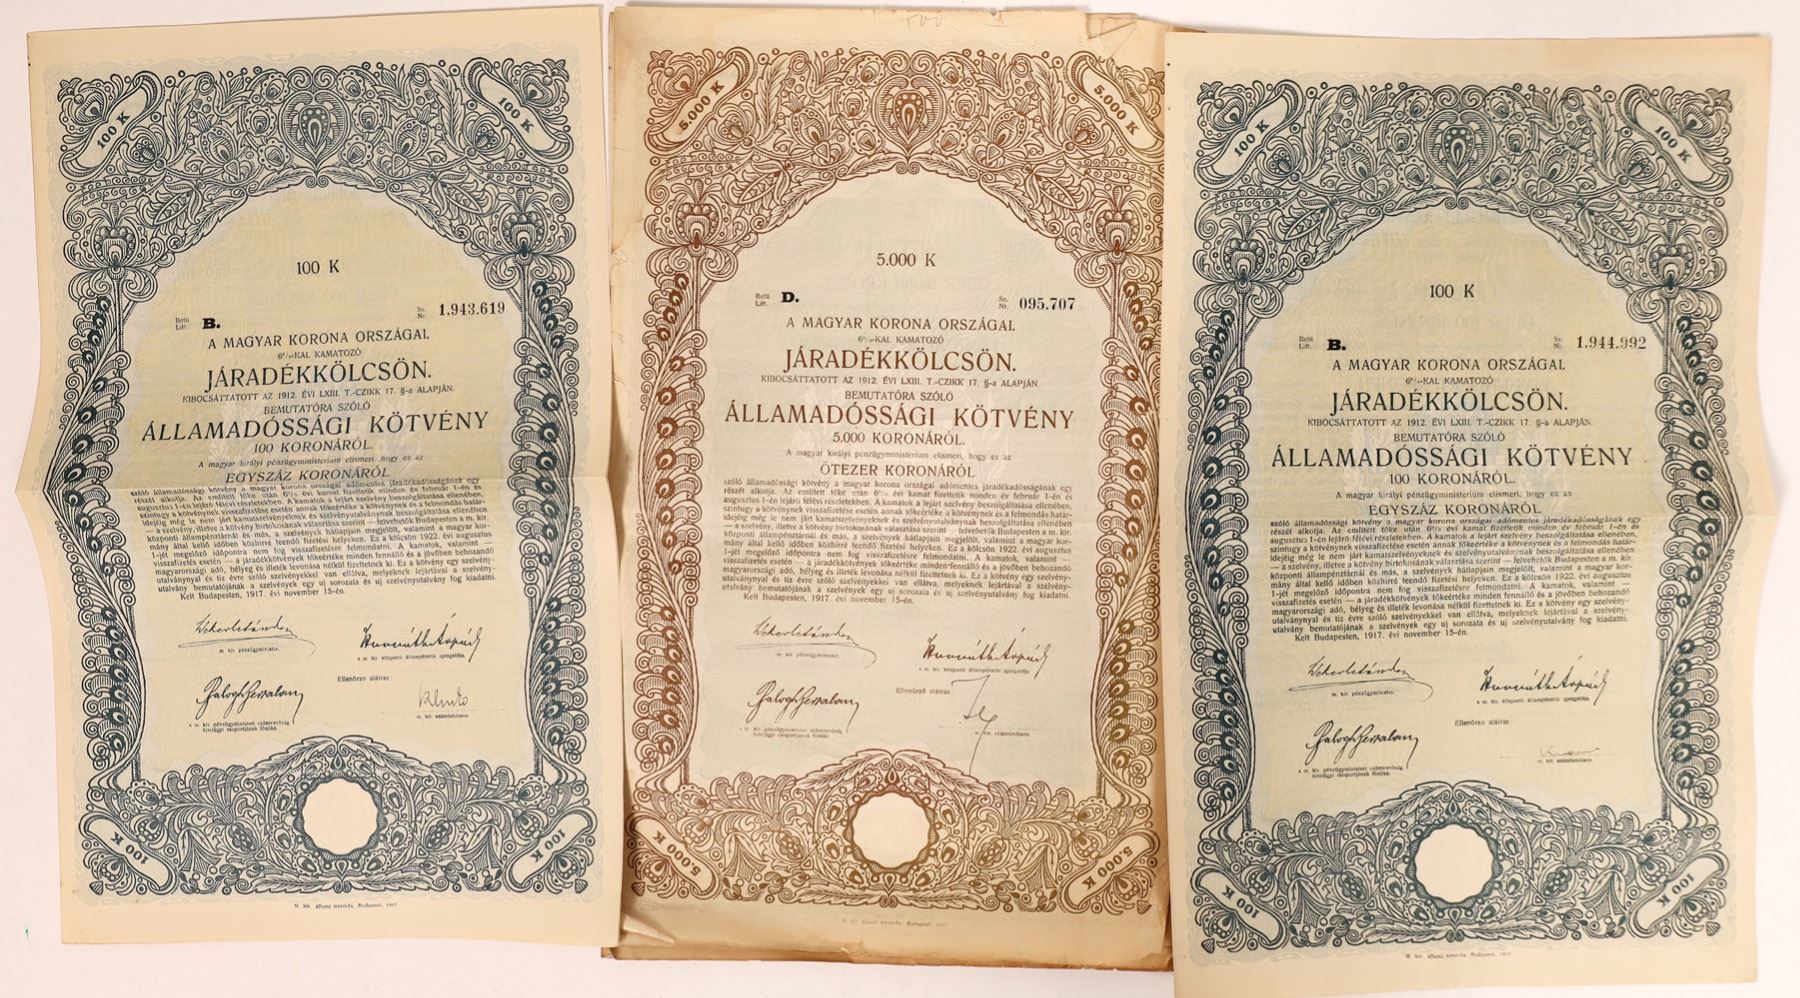 100 K
100 K
100 K
Betű
Litt. B.
Sz.
Nr. 1.943.619
A MAGYAR KORONA ORSZÁGAI.
6%-KAL KAMATOZÓ
JÁRADÉKKÖLCSÖN.
KIBOCSÁTTATOTT AZ 1912. ÉVI LXIII. T.-CZIKK 17. §-a ALAPJÁN.
BEMUTATÓRA SZÓLÓ
ÁLLAMADÓSSÁGI KÖTVÉNY
100 KORONÁRÓL.
A magyar királyi pénzügyministerium elismeri, hogy ez az
EGYSZÁZ KORONÁRÓL
szóló államadóssági kötvény a magyar korona országai adómentes járadékadósságának egy
részét alkotja. Az említett tőke után 6% évi kamat fizettetik minden év február 1-én és
augusztus 1-én lejáró félévi részletekben. A kamatok a lejárt szelvény beszolgáltatása ellenében,
szintugy a kötvénynek visszafizetése esetén annak tőkeértéke a kötvénynek és a felmondás határ-
idejéig még le nem járt kamatszelvényeknek és szelvényutalványnak beszolgáltatása ellenében
— a szelvény, illetve a kötvény birtokosának választása szerint — felvehetők Budapesten a m. kir.
központi állampénztárnál és más, a szelvények hátlapjain megjelölt, valamint a magyar kor-
mány által kellő időben közhírré teendő fizetési helyeken. Ez a kölcsön 1922. évi augusztus
1-jét megelőző időpontra nem fog visszafizetésre felmondatni. A kamatok, valamint —
visszafizetés esetén — a járadékkötvények tőkeértéke minden fennálló és a jövőben behozandó
magyarországi adó, bélyeg és illeték levonása nélkül fizettetnek ki. Ez a kötvény egy szelvény-
utalvánnyal és tíz évre szóló szelvényekkel van ellátva, melyeknek lejártával a szelvény-
utalvány bemutatójának a szelvények egy uj sorozata és uj szelvényutalvány fog kiadatni.
Kelt Budapesten, 1917. évi november 15-én.
m. kir. pénzügyminister.
a m. kir. központi állampénztár igazgatója.
Ellenőrző aláírás:
a m. kir. pénzügyministeri számvevőség
hitelügyi csoportjának főnöke.
m. kir. számtanácsos.
100 K
100 K
M. kir. állami nyomda. Budapest, 1917.
5.000 K
5.000 K
5.000 K
Betű
Litt. D.
Sz.
Nr. 095.707
A MAGYAR KORONA ORSZÁGAI.
6%-KAL KAMATOZÓ
JÁRADÉKKÖLCSÖN.
KIBOCSÁTTATOTT AZ 1912. ÉVI LXIII. T.-CZIKK 17. §-a ALAPJÁN.
BEMUTATÓRA SZÓLÓ
ÁLLAMADÓSSÁGI KÖTVÉNY
5.000 KORONÁRÓL.
A magyar királyi pénzügyministerium elismeri, hogy ez az
ÖTEZER KORONÁRÓL
szóló államadóssági kötvény a magyar korona országai adómentes járadékadósságának egy
részét alkotja. Az említett tőke után 6% évi kamat fizettetik minden év február 1-én és
augusztus 1-én lejáró félévi részletekben. A kamatok a lejárt szelvény beszolgáltatása ellenében,
szintugy a kötvénynek visszafizetése esetén annak tőkeértéke a kötvénynek és a felmondás határ-
idejéig még le nem járt kamatszelvényeknek és szelvényutalványnak beszolgáltatása ellenében
— a szelvény, illetve a kötvény birtokosának választása szerint — felvehetők Budapesten a m. kir.
központi állampénztárnál és más, a szelvények hátlapjain megjelölt, valamint a magyar kor-
mány által kellő időben közhírré teendő fizetési helyeken. Ez a kölcsön 1922. évi augusztus
1-jét megelőző időpontra nem fog visszafizetésre felmondatni. A kamatok, valamint —
visszafizetés esetén — a járadékkötvények tőkeértéke minden fennálló és a jövőben behozandó
magyarországi adó, bélyeg és illeték levonása nélkül fizettetnek ki. Ez a kötvény egy szelvény-
utalvánnyal és tíz évre szóló szelvényekkel van ellátva, melyeknek lejártával a szelvény-
utalvány bemutatójának a szelvények egy uj sorozata és uj szelvényutalvány fog kiadatni.
Kelt Budapesten, 1917. évi november 15-én.
m. kir. pénzügyminister.
a m. kir. központi állampénztár igazgatója.
Ellenőrző aláírás:
a m. kir. pénzügyministeri számvevőség
hitelügyi csoportjának főnöke.
m. kir. számtanácsos.
5.000 K
5.000 K
M. kir. állami nyomda. Budapest, 1917.
100 K
100 K
100 K
Betű
Litt. B.
Sz.
Nr. 1.944.992
A MAGYAR KORONA ORSZÁGAI.
6%-KAL KAMATOZÓ
JÁRADÉKKÖLCSÖN.
KIBOCSÁTTATOTT AZ 1912. ÉVI LXIII. T.-CZIKK 17. §-a ALAPJÁN.
BEMUTATÓRA SZÓLÓ
ÁLLAMADÓSSÁGI KÖTVÉNY
100 KORONÁRÓL.
A magyar királyi pénzügyministerium elismeri, hogy ez az
EGYSZÁZ KORONÁRÓL
szóló államadóssági kötvény a magyar korona országai adómentes járadékadósságának egy
részét alkotja. Az említett tőke után 6% évi kamat fizettetik minden év február 1-én és
augusztus 1-én lejáró félévi részletekben. A kamatok a lejárt szelvény beszolgáltatása ellenében,
szintugy a kötvénynek visszafizetése esetén annak tőkeértéke a kötvénynek és a felmondás határ-
idejéig még le nem járt kamatszelvényeknek és szelvényutalványnak beszolgáltatása ellenében
— a szelvény, illetve a kötvény birtokosának választása szerint — felvehetők Budapesten a m. kir.
központi állampénztárnál és más, a szelvények hátlapjain megjelölt, valamint a magyar kor-
mány által kellő időben közhírré teendő fizetési helyeken. Ez a kölcsön 1922. évi augusztus
1-jét megelőző időpontra nem fog visszafizetésre felmondatni. A kamatok, valamint —
visszafizetés esetén — a járadékkötvények tőkeértéke minden fennálló és a jövőben behozandó
magyarországi adó, bélyeg és illeték levonása nélkül fizettetnek ki. Ez a kötvény egy szelvény-
utalvánnyal és tíz évre szóló szelvényekkel van ellátva, melyeknek lejártával a szelvény-
utalvány bemutatójának a szelvények egy uj sorozata és uj szelvényutalvány fog kiadatni.
Kelt Budapesten, 1917. évi november 15-én.
m. kir. pénzügyminister.
a m. kir. központi állampénztár igazgatója.
Ellenőrző aláírás:
a m. kir. pénzügyministeri számvevőség
hitelügyi csoportjának főnöke.
m. kir. számtanácsos.
100 K
100 K
M. kir. állami nyomda. Budapest, 1917.